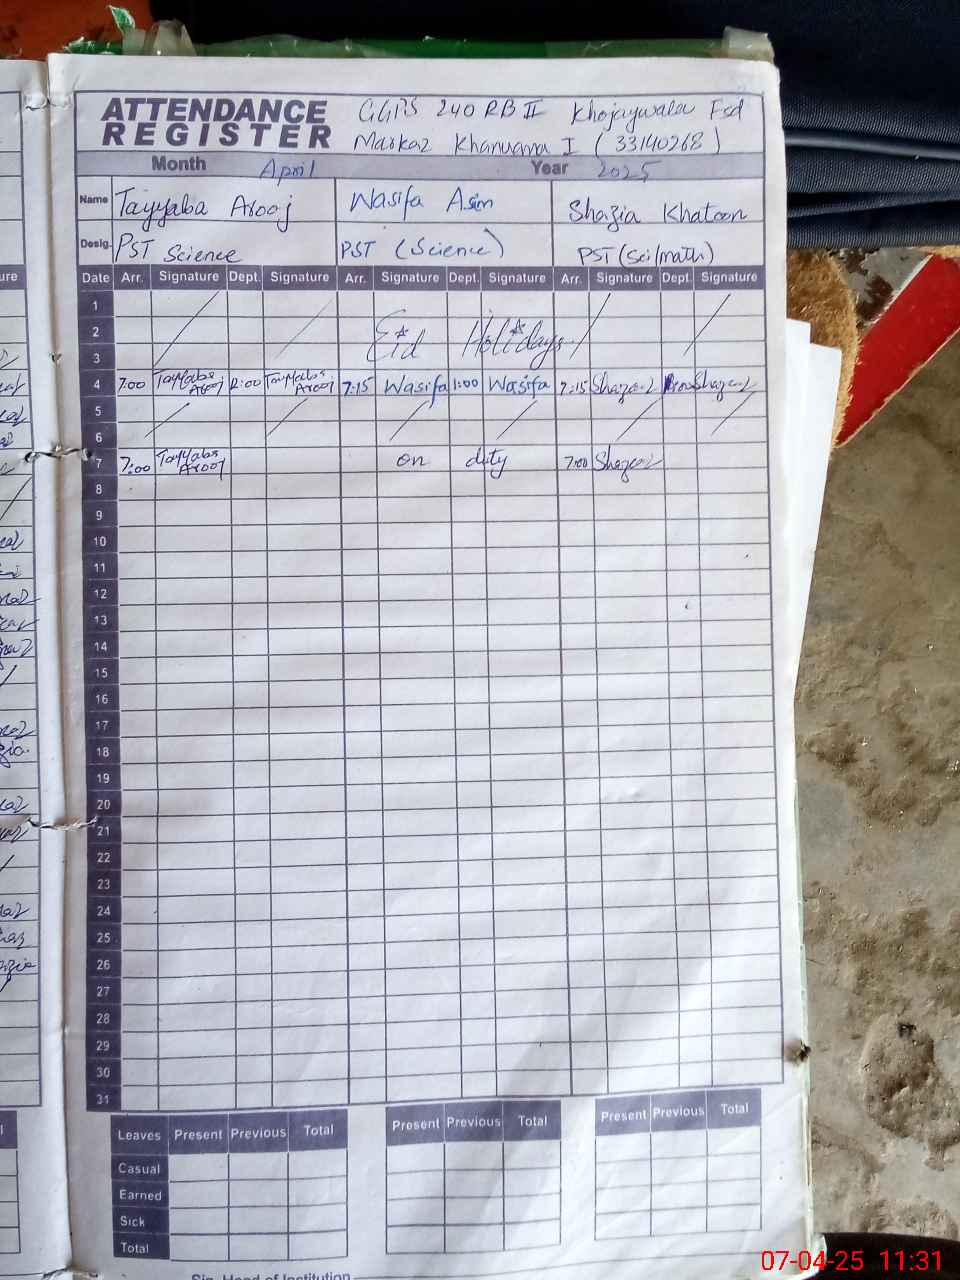 ATTENDANCE REGISTER
GGPS 240 RB II Khojaywala Fsd
Markaz Khanuana I (33140268)
Month April Year 2025
Name Tayyaba Arooj Wasifa Asim Shazia Khatoon
Desig. PST Science PST (Science) PST (Sci/math)
Date Arr. Signature Dept. Signature Arr. Signature Dept. Signature Arr. Signature Dept. Signature
1
2 Eid Holidays
3
4 7:00 Tayyaba Arooj 12:00 Tayyaba Arooj 7:15 Wasifa 1:00 Wasifa 7:15
5
6
7 7:00 Tayyaba Arooj on duty 7:00
8
9
10
11
12
13
14
15
16
17
18
19
20
21
22
23
24
25
26
27
28
29
30
31
Leaves Present Previous Total Present Previous Total Present Previous Total
Casual
Earned
Sick
Total
Sig. Head of Institution
07-04-25 11:31